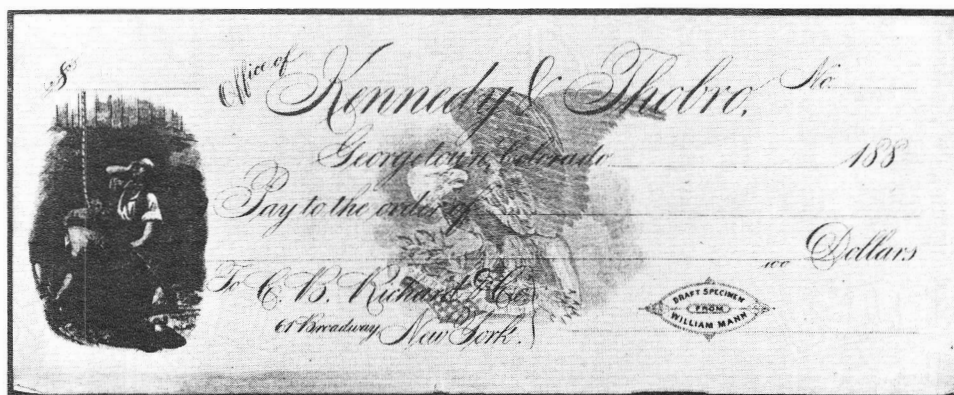 $
Office of Kennedy & Thobro, No.
Georgetown, Colorado 188
Pay to the order of
100 Dollars
To C. B. Richard & Co.
61 Broadway, New York.
DRAFT SPECIMEN
FROM
WILLIAM MANN